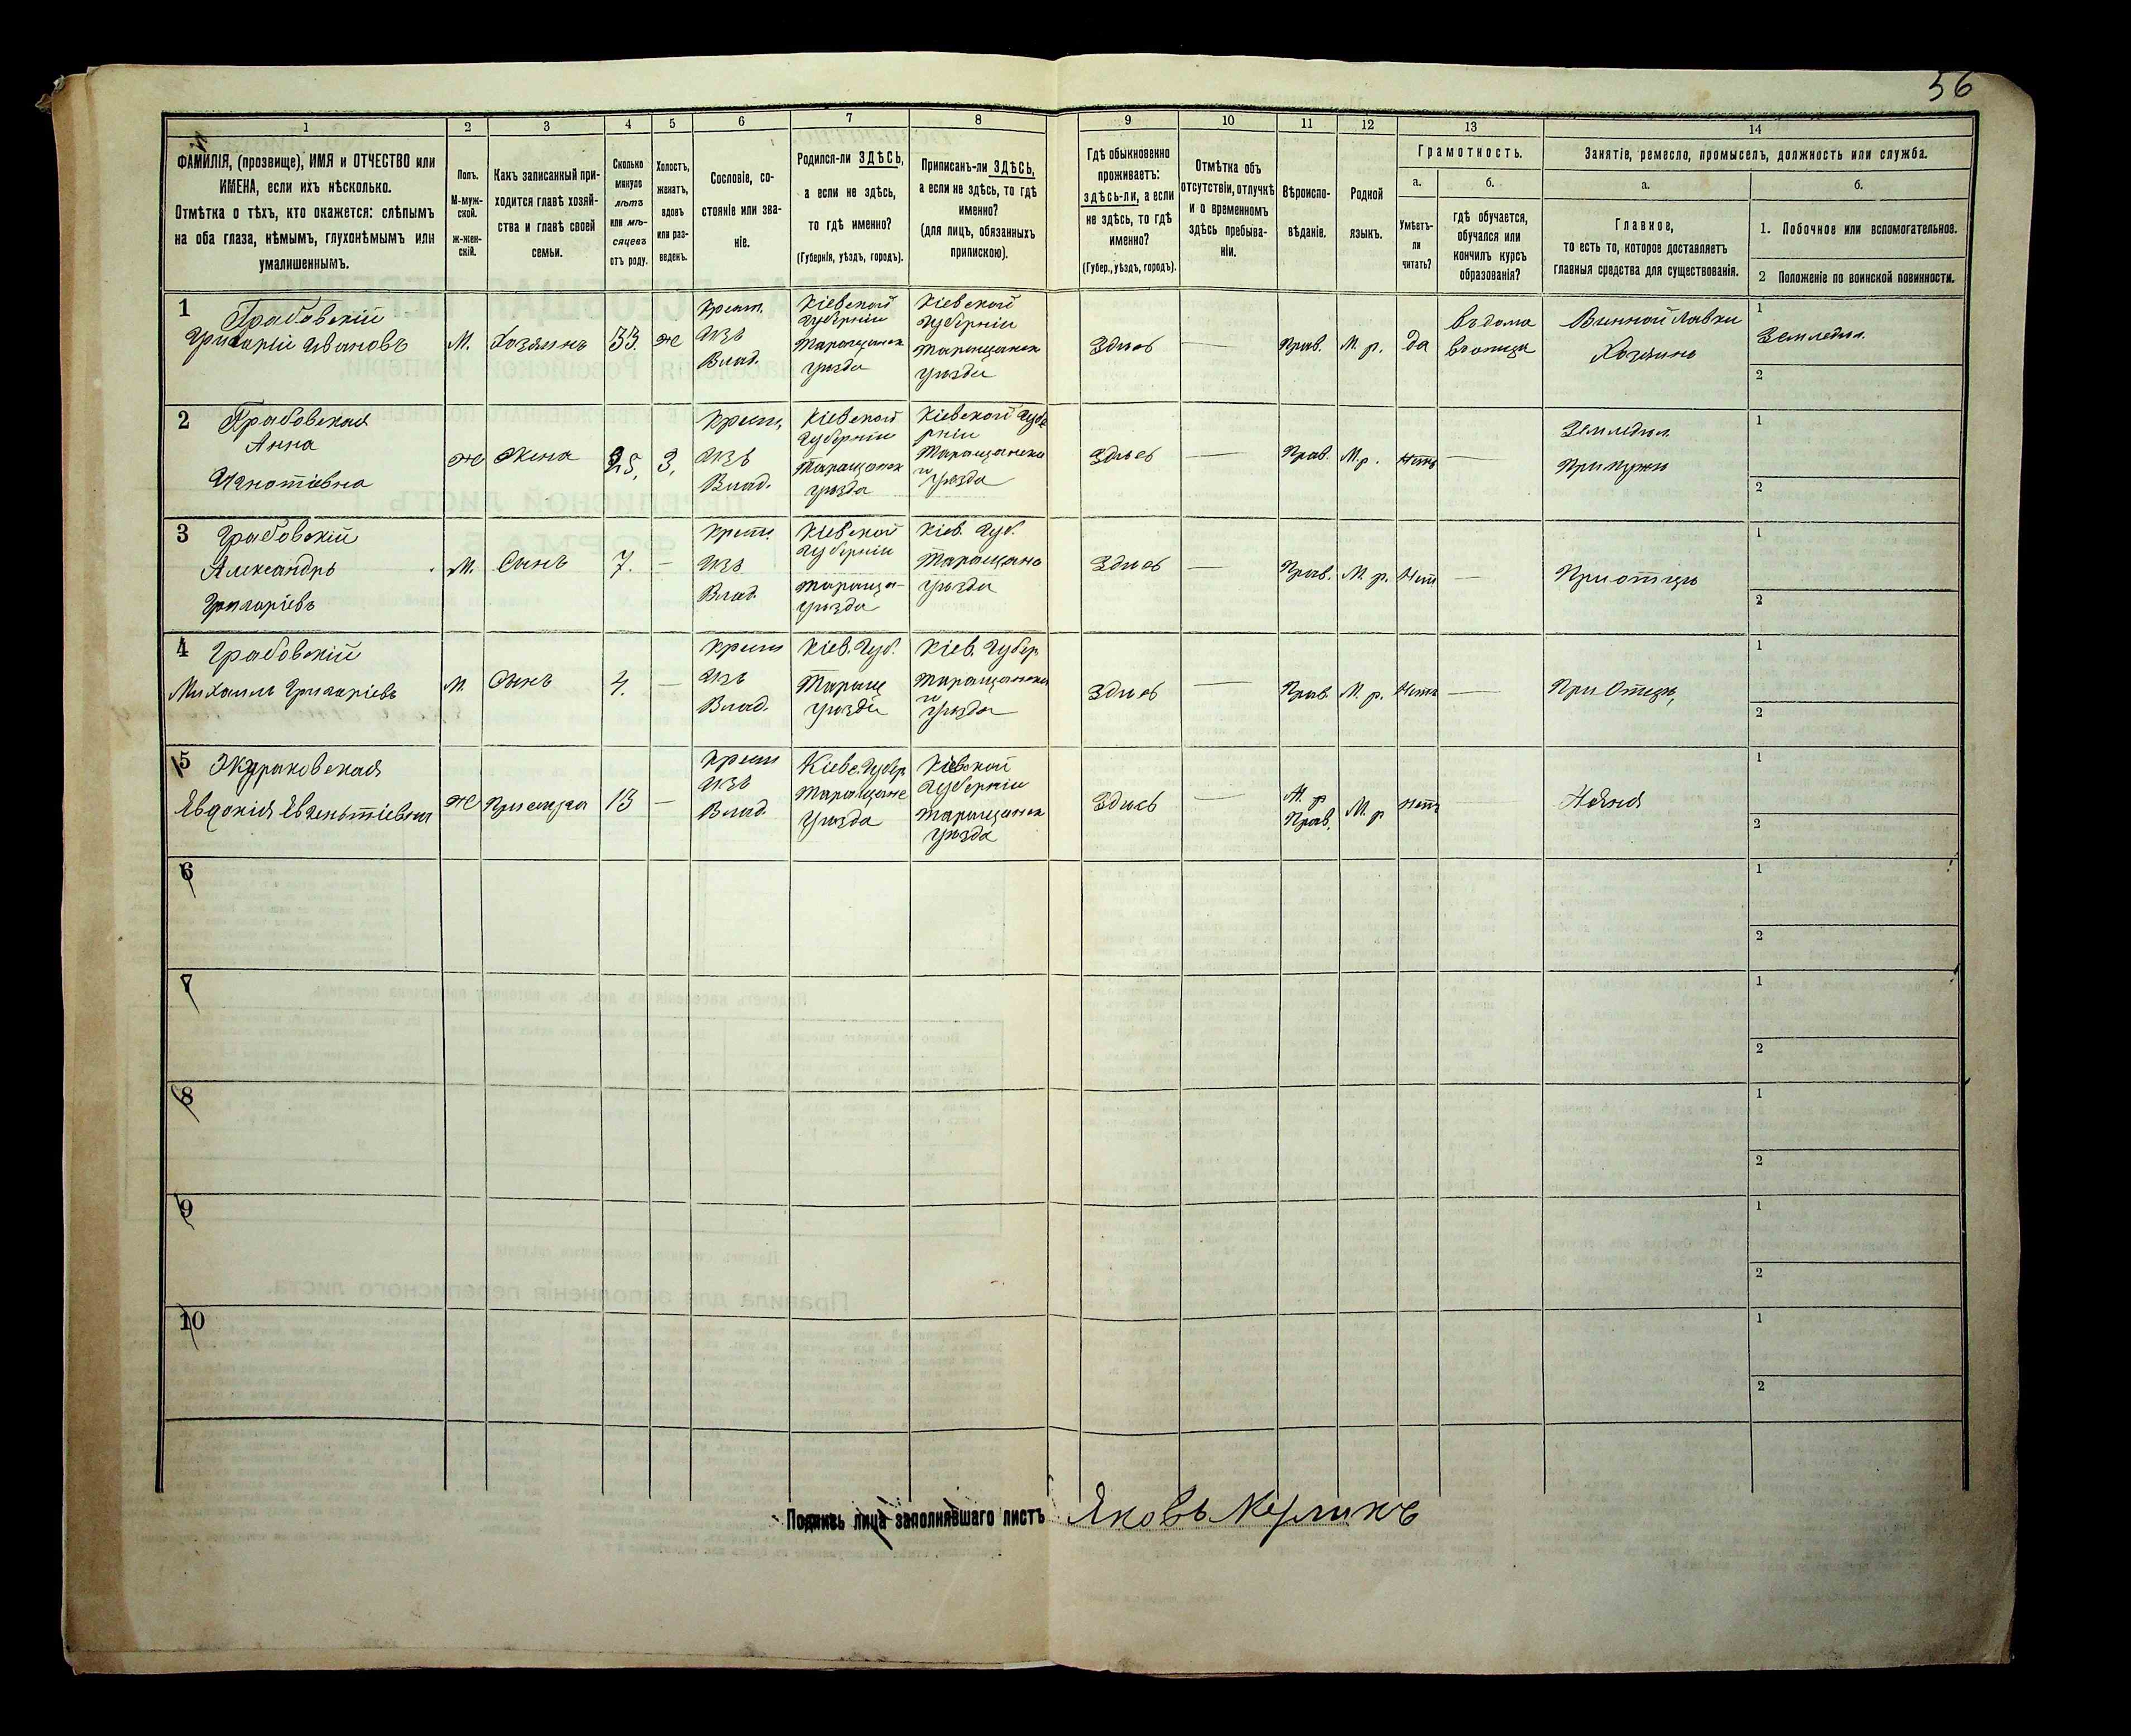 56
1
2
3
4
5
6
7
8
9
10
11
12
13
14
ФАМИЛІЯ, (прозвище), ИМЯ и ОТЧЕСТВО или
ИМЕНА, если ихъ нѣсколько.
Отмѣтка о тѣхъ, кто окажется: слѣпымъ
на оба глаза, нѣмымъ, глухонѣмымъ или
умалишеннымъ.
Полъ.
М-муж-
ской.
ж-жен-
скій.
Какъ записанный при-
ходится главѣ хозяй-
ства и главѣ своей
семьи.
Сколько
минуло
лѣтъ
или мѣ-
сяцевъ
отъ роду.
Холостъ,
женатъ,
вдовъ
или раз-
веденъ.
Сословіе, со-
стояніе или зва-
ніе.
Родился-ли ЗДѢСЬ,
а если не здѣсь,
то гдѣ именно?
(Губернія, уѣздъ, городъ).
Приписанъ-ли ЗДѢСЬ,
а если не здѣсь, то гдѣ
именно?
(для лицъ, обязанныхъ
припискою).
Гдѣ обыкновенно
проживаетъ:
здѣсь-ли, а если
не здѣсь, то гдѣ
именно?
(Губер., уѣздъ, городъ).
Отмѣтка объ
отсутствіи, отлучкѣ
и о временномъ
здѣсь пребыва-
ніи.
Вѣроиспо-
вѣданіе.
Родной
языкъ.
Грамотность.
а.
Умѣетъ-
ли
читать?
б.
гдѣ обучается,
обучался или
кончилъ курсъ
образованія?
Занятіе, ремесло, промыселъ, должность или служба.
а.
Главное,
то есть то, которое доставляетъ
главныя средства для существованія.
б.
1. Побочное или вспомогательное.
2 Положеніе по воинской повинности.
1
Грабовскій
Григорій Ивановъ
М.
Хозяинъ
33
ж
крест.
изъ
Влад.
Кіевской
Губерніи
Таращанск
уѣзда
Кіевской
Губерніи
Таращанск
уѣзда
Здиеь
—
Прав.
М. р.
да
Винной лавки
Хозяинъ
1
Земледѣл.
2
2
Грабовская
Анна
Игнатіевна
ж
Жена
25,
З,
крест,
изъ
Влад.
Кіевской
Губерніи
Таращанск
уѣзда
Кіевской Губе
рніи
Таращанска
го
уѣзда
Здиеь
—
Прав.
М. р.
Нѣтъ
—
Земледѣл.
При мужѣ
1
2
3
Грабовскій
Александръ
Григоріевъ
М.
Сынъ
7.
—
крест.
изъ
Влад.
Кіевской
Губерніи
Тараща-
уѣзда
Кіев. Губ.
Таращанс
уѣзда
Здиеь
—
Прав.
М. р.
Нѣт
—
При отцѣ
1
2
4
Грабовскій
Михаилъ Григоріевъ
М.
Сынъ
4.
—
крест
изъ
Влад.
Кіев. Губ.
Таращ
уѣзда
Кіев. Губер
Таращанска
го
уѣзда
Здиеь
—
Прав
М. р.
Нѣтъ
—
При Отцѣ,
1
2
5
Явдокія
ж
Прислуга
13
—
крест
изъ
Влад.
Кіевс. Губер
Таращанс
уѣзда
Кіевской
Губерніи
Таращанск
уѣзда
Здиеь
—
М. р
Прав.
М. р
Нѣтъ
Няня
1
2
6
1
2
7
1
2
8
1
2
9
1
2
10
1
2
Подпись лица заполнявшаго листъ
Яковъ